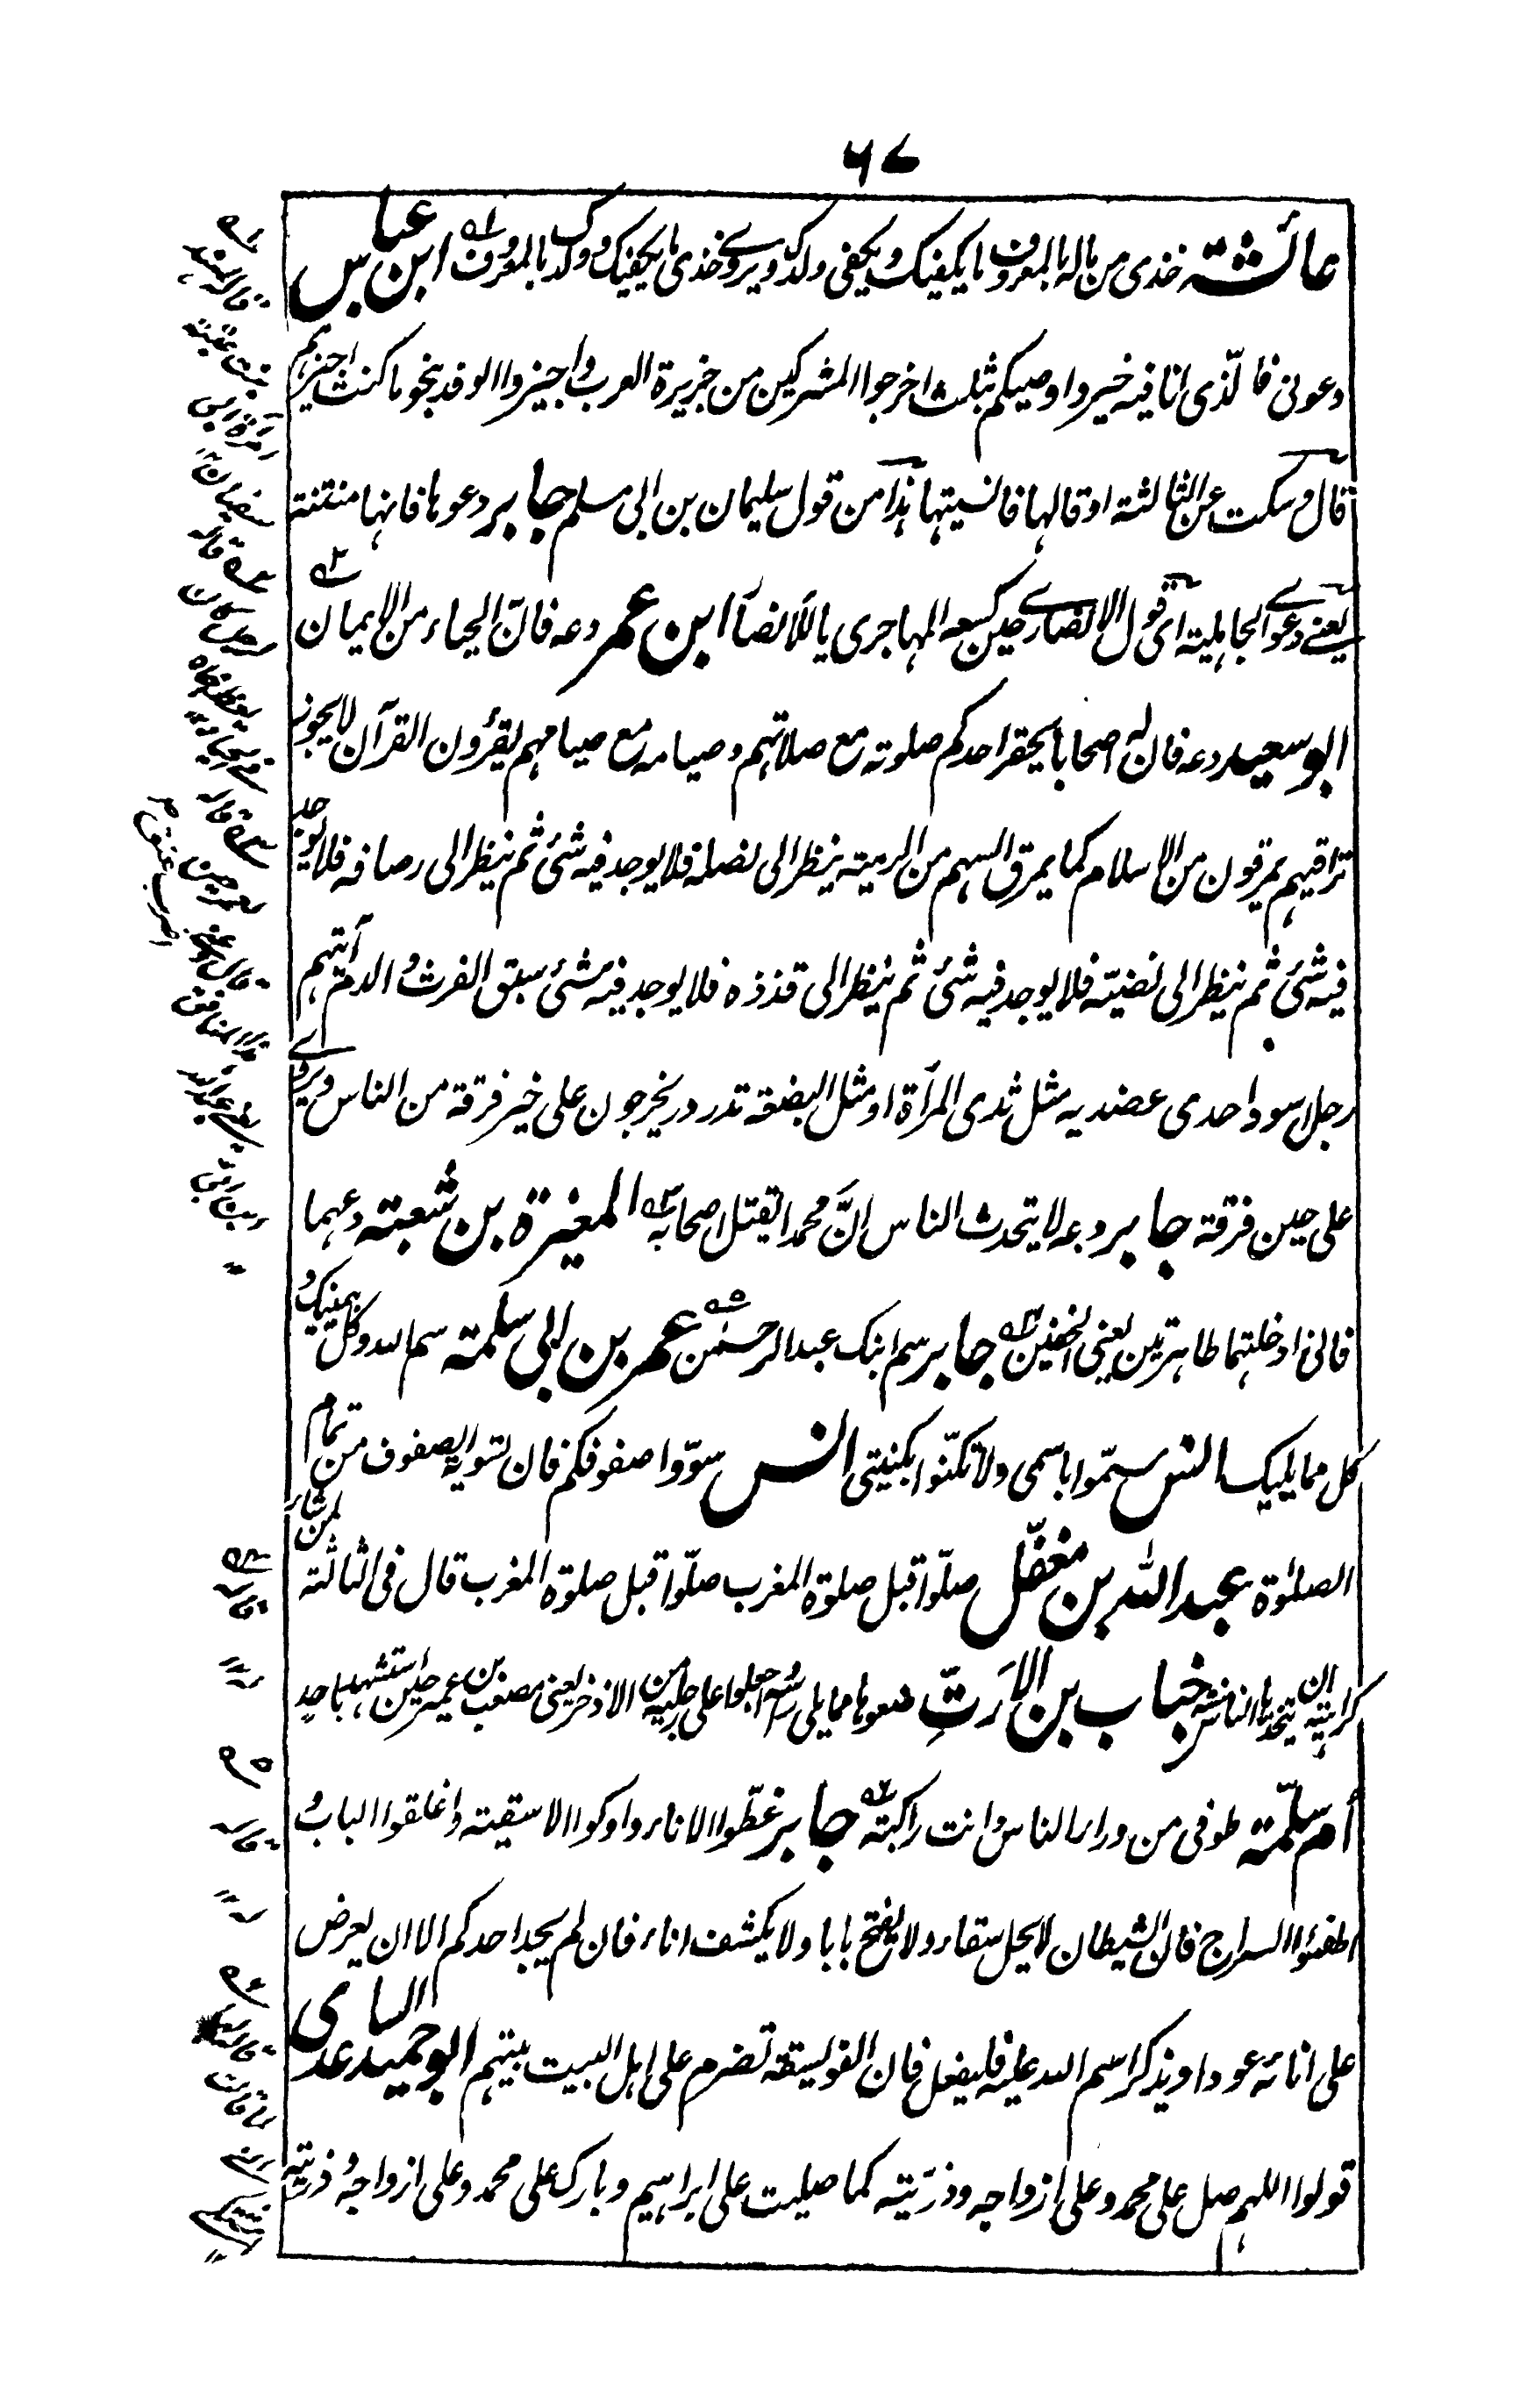 ٦٧
عائشة خذى من ماله بالمعروف ما يكفيك ويكفى ولدك ويروى خذى ما يكفيك وولدك بالمعروف ابن عباس
دعونى فالّذى انا فيه خير واوصيكم بثلث اخرجوا المشركين من جزيرة العرب واجيزوا الوفد بنحو ما كنت اجيزهم
قال وسكت عن الثالثة او قالها فانسيتها هذا من قول سليمان بن ابى مسلم جابر دعوها فانها منتنة
يعنى دعوى الجاهلية اى قول الانصارى حين كسعه المهاجرى يا للانصار ابن عمر دعه فانّ الحياء من الايمان
ابو سعيد دعه فان له اصحابا يحقر احدكم صلوته مع صلاتهم وصيامه مع صيامهم يقرؤن القرآن لا يجوز
تراقيهم يمرقون من الاسلام كما يمرق السهم من الرمية ينظر الى نصله فلا يوجد فيه شئ ثم ينظر الى رصافه فلا يوجد
فيه شئ ثم ينظر الى نضيّه فلا يوجد فيه شئ ثم ينظر الى قذذه فلا يوجد فيه شئ سبق الفرث والدم آيتهم
رجل اسود احدى عضديه مثل ثدى المرأة او مثل البضعة تدردر يخرجون على خير فرقة من الناس ويروى
على حين فرقة جابر دعه لا يتحدث الناس انّ محمدا يقتل اصحابه المغيرة بن شعبة دعهما
فانى ادخلتهما طاهرتين يعنى الخفين جابر سم ابنك عبد الرحمن عمر بن ابى سلمة سم الله وكل بيمينك و
كل مما يليك انس سمّوا باسمى ولا تكنّوا بكنيتى انس سوّوا صفوفكم فان تسوية الصفوف من تمام
الصلوة عبد الله بن مغفّل صلّوا قبل صلوة المغرب صلّوا قبل صلوة المغرب قال فى الثالثة لمن شاء
كراهية ان يتخذها الناس سنة خباب بن الارتّ ضعوها مما يلى رأسه واجعلوا على رجليه من الاذخر يعنى مصعب بن عمير حين استشهد باحد
أم سلمة طوفى من وراء الناس وانت راكبة جابر غطّوا الاناء واوكوا الاسقية واغلقوا الباب و
اطفئوا السراج فان الشيطان لا يحل سقاء ولا يفتح بابا ولا يكشف اناء فان لم يجد احدكم الا ان يعرض
على انائه عودا ويذكر اسم الله عليه فليفعل فان الفويسقة تضرم على اهل البيت بيتهم ابو حميد الساعدى
قولوا اللهم صل على محمد وعلى ازواجه وذريته كما صليت على ابراهيم وبارك على محمد وعلى ازواجه وذريته